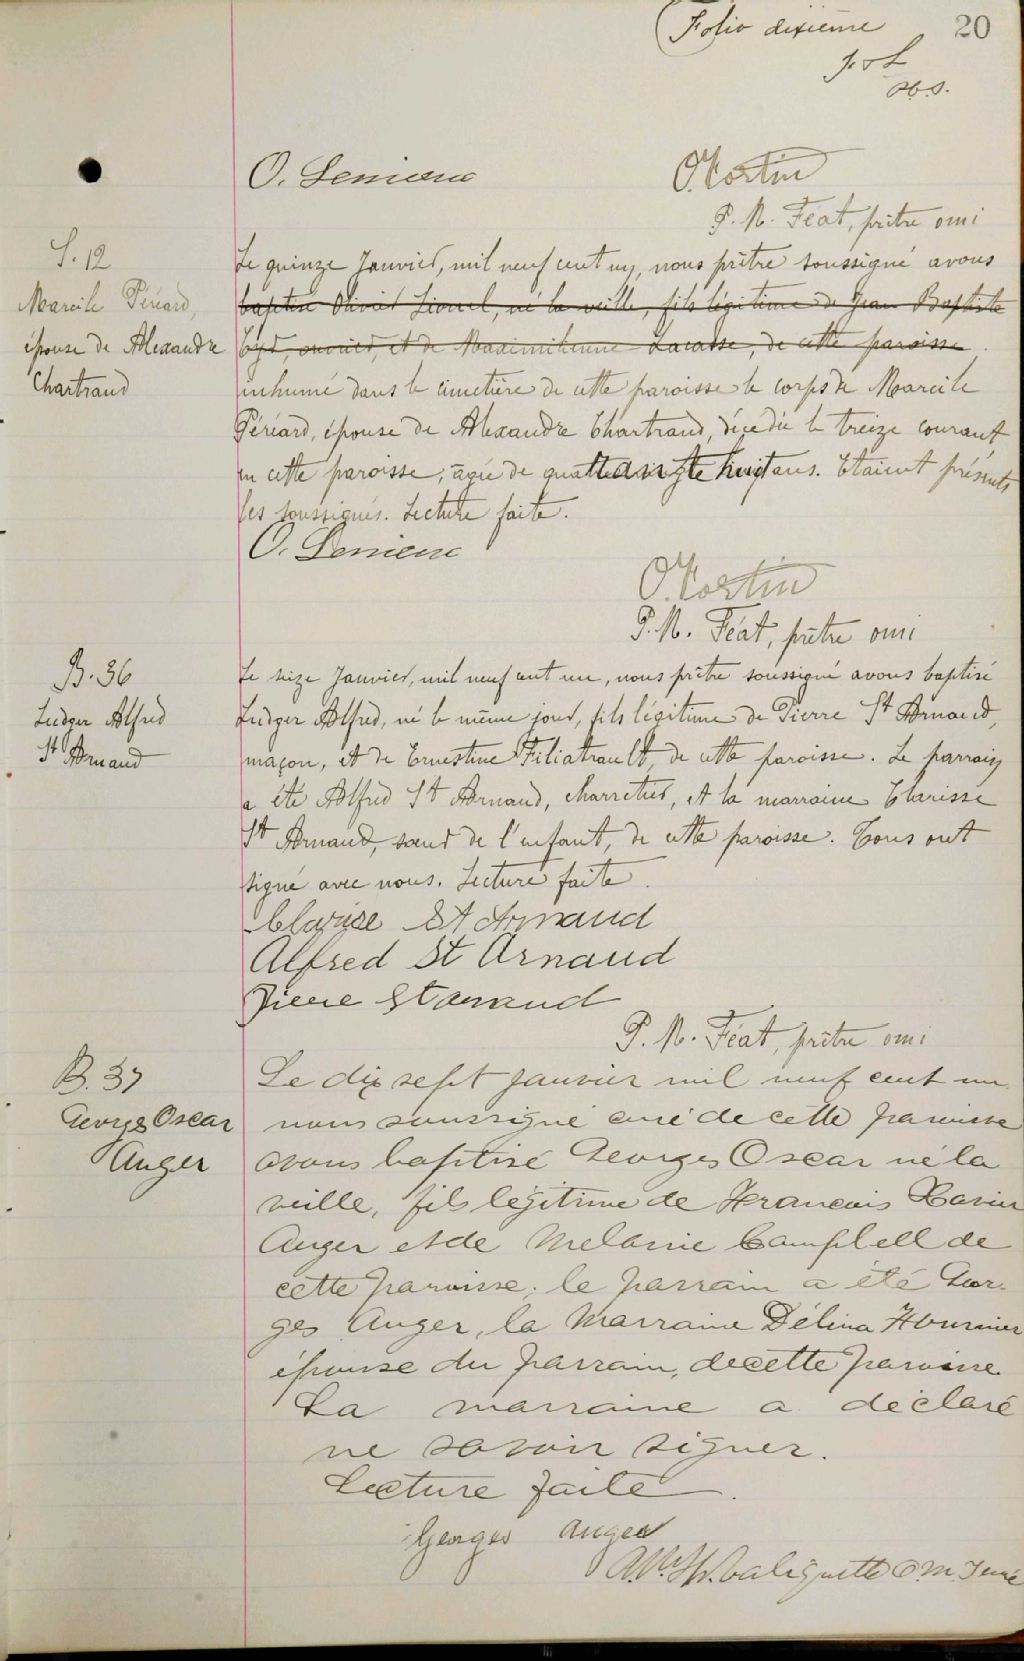 Folio dixième 20
O. Lemieux O. Fortin
P. M. Féat, prêtre omi
S. 12
Marcile Périard,
épouse de Alexandre
Chartrand
Le quinze Janvier, mil neuf cent un, nous prêtre soussigné avons
baptisé Olivier Lionel, né la veille, fils légitime de Jean Baptiste
Cyr, ouvrier, et de Maximilienne Lacasse, de cette paroisse.
inhumé dans le cimetière de cette paroisse le corps de Marcile
Périard, épouse de Alexandre Chartrand, décédée le treize courant
en cette paroisse, âgée de quatre vingt huit ans. Etaient présents
les soussignés. Lecture faite.
O. Lemieux
O. Fortin
P. M. Féat, prêtre omi
B. 36
Ludger Alfred
St Arnaud
Le seize Janvier, mil neuf cent un, nous prêtre soussigné avons baptisé
Ludger Alfred, né le même jour, fils légitime de Pierre St Arnaud,
maçon, et de Ernestine Filiatrault, de cette paroisse. Le parrain
a été Alfred St Arnaud, charretier, et la marraine Clarisse
St Arnaud, sœur de l'enfant, de cette paroisse. Tous ont
signé avec nous. Lecture faite.
Clarise St Arnaud
Alfred St Arnaud
Pierre St arnaud
P. M. Féat, prêtre omi
B. 37
George Oscar
Auger
Le dix sept janvier mil neuf cent un
nous soussigné curé de cette paroisse
avons baptisé Georges Oscar né la
veille, fils légitime de Francois Xavier
Auger et de Melanie Campbell de
cette paroisse; le parrain a été Geor-
ges Auger, la Marraine Délina Fournier
épouse du parrain, de cette paroisse.
La marraine a déclaré
ne savoir signer.
Lecture faite.
Georges Auger